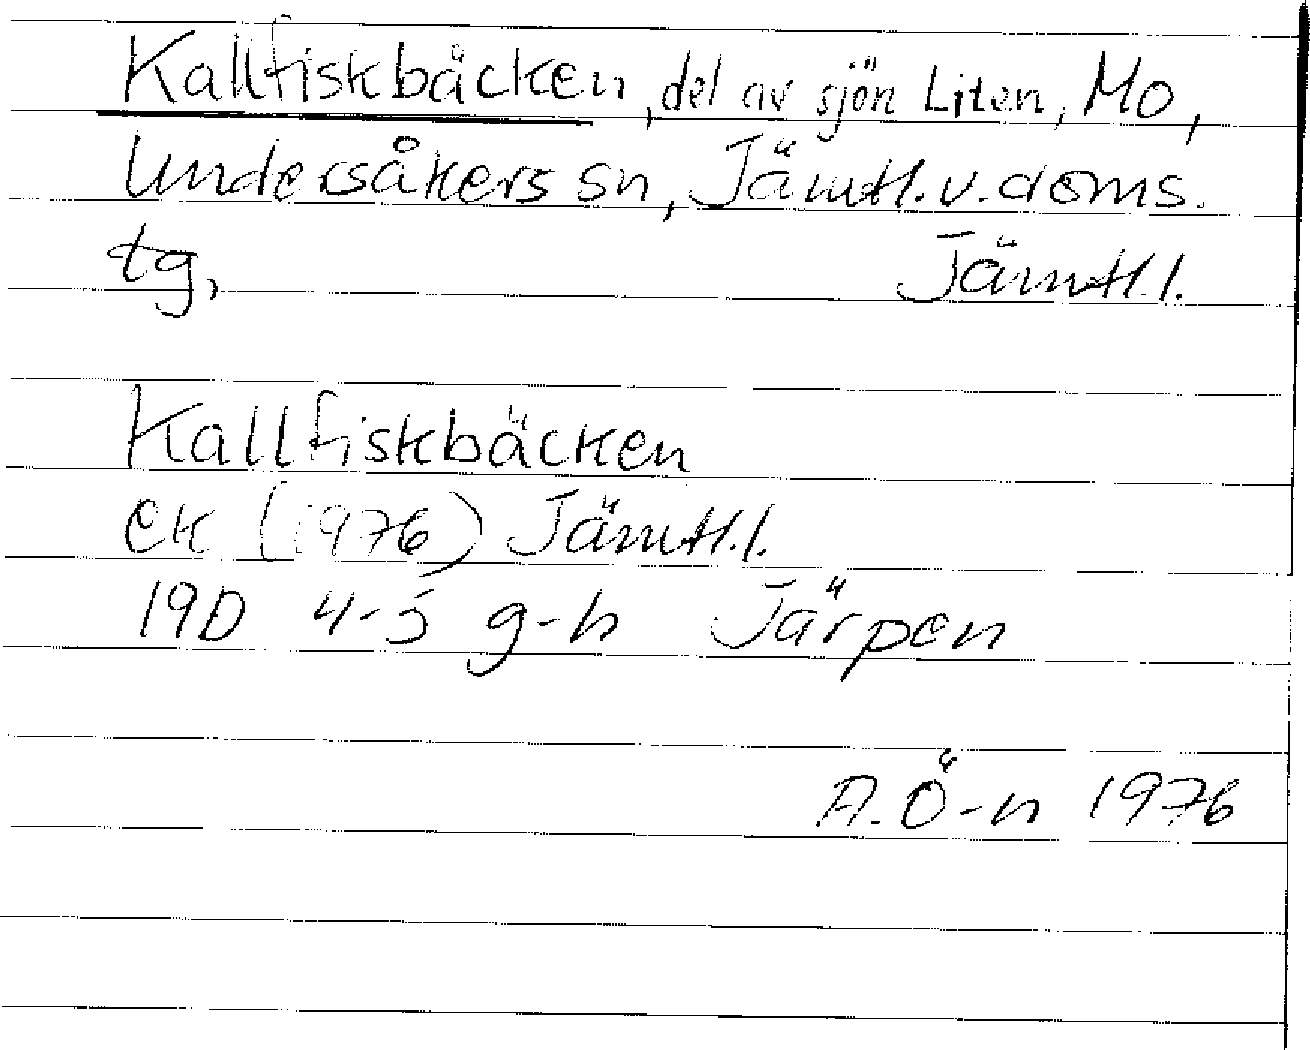 Kallfiskbäcken, del av sjön Liten, Mo,
Undersåkers sn, Jämtl.v.doms.
tg, Jämtl.l.
Kallfiskbäcken
EK (1976) Jämtl.l.
19D 4-5 g-h Järpen
A.Ö-n 1976